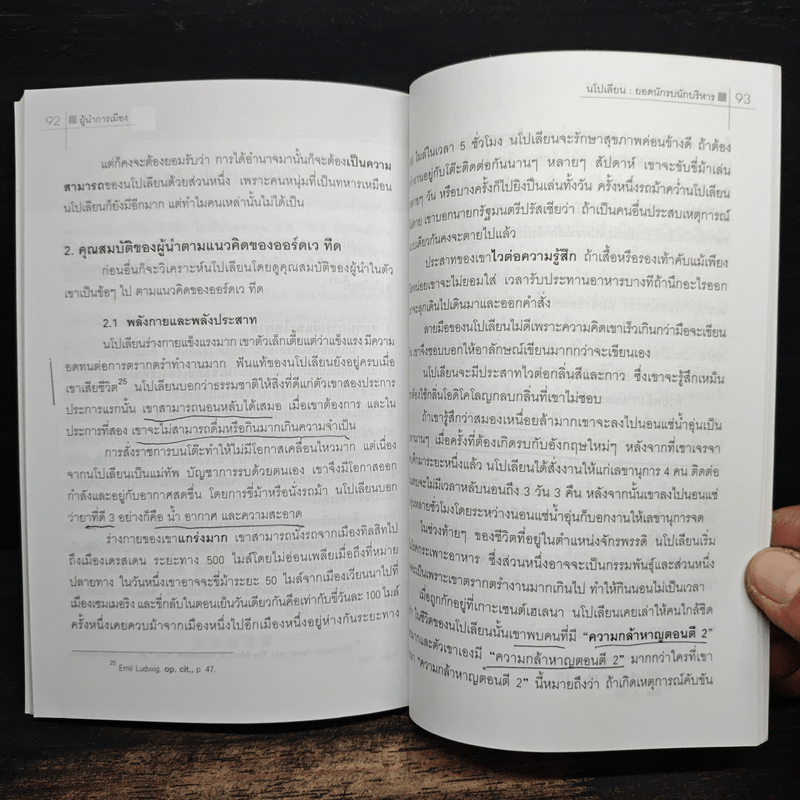 92 ผู้นำการเมือง
แต่ก็คงจะต้องยอมรับว่า การได้อำนาจมานั้นก็จะต้องเป็นความ
สามารถของนโปเลียนด้วยส่วนหนึ่ง เพราะคนหนุ่มที่เป็นทหารเหมือน
นโปเลียนก็ยังมีอีกมาก แต่ทำไมคนเหล่านั้นไม่ได้เป็น
2. คุณสมบัติของผู้นำตามแนวคิดของออร์ดเว ทีด
ก่อนอื่นก็จะวิเคราะห์นโปเลียนโดยดูคุณสมบัติของผู้นำในตัว
เขาเป็นข้อๆ ไป ตามแนวคิดของออร์ดเว ทีด
2.1 พลังกายและพลังประสาท
นโปเลียนร่างกายแข็งแรงมาก เขาตัวเล็กเตี้ยแต่ว่าแข็งแรง มีความ
อดทนต่อการตรากตรำทำงานมาก ฟันแท้ของนโปเลียนยังอยู่ครบเมื่อ
เขาเสียชีวิต25 นโปเลียนบอกว่าธรรมชาติให้สิ่งที่ดีแก่ตัวเขาสองประการ
ประการแรกนั้น เขาสามารถนอนหลับได้เสมอ เมื่อเขาต้องการ และใน
ประการที่สอง เขาจะไม่สามารถดื่มหรือกินมากเกินความจำเป็น
การสั่งราชการบนโต๊ะทำให้ไม่มีโอกาสเคลื่อนไหวมาก แต่เนื่อง
จากนโปเลียนเป็นแม่ทัพ บัญชาการรบด้วยตนเอง เขาจึงมีโอกาสออก
กำลังและอยู่กับอากาศสดชื่น โดยการขี่ม้าหรือนั่งรถม้า นโปเลียนบอก
ว่ายาที่ดี 3 อย่างก็คือ น้ำ อากาศ และความสะอาด
ร่างกายของเขาแกร่งมาก เขาสามารถนั่งรถจากเมืองทิลสิทไป
ถึงเมืองเดรสเดน ระยะทาง 500 ไมล์โดยไม่อ่อนเพลียเมื่อถึงที่หมาย
ปลายทาง ในวันหนึ่งเขาอาจจะขี่ม้าระยะ 50 ไมล์จากเมืองเวียนนาไปที่
เมืองเซมเมอริง และขี่กลับในตอนเย็นวันเดียวกันคือเท่ากับขี่วันละ 100 ไมล์
ครั้งหนึ่งเคยควบม้าจากเมืองหนึ่งไปอีกเมืองหนึ่งอยู่ห่างกันระยะทาง
25 Emil Ludwig. op. cit., p. 47.
นโปเลียน : ยอดนักรบนักบริหาร 93
ไมล์ในเวลา 5 ชั่วโมง นโปเลียนจะรักษาสุขภาพค่อนข้างดี ถ้าต้อง
ทำงานอยู่กับโต๊ะติดต่อกันนานๆ หลายๆ สัปดาห์ เขาจะขับขี่ม้าเล่น
หลายๆ วัน หรือบางครั้งก็ไปยิงปืนเล่นทั้งวัน ครั้งหนึ่งรถม้าคว่ำนโปเลียน
เขาบอกนายกรัฐมนตรีปรัสเซียว่า ถ้าเป็นคนอื่นประสบเหตุการณ์
แบบเดียวกันคงจะตายไปแล้ว
ประสาทของเขาไวต่อความรู้สึก ถ้าเสื้อหรือรองเท้าคับแม้เพียง
เขาจะไม่ยอมใส่ เวลารับประทานอาหารบางทีถ้านึกอะไรออก
จะลุกเดินไปเดินมาและออกคำสั่ง
ลายมือของนโปเลียนไม่ดีเพราะความคิดเขาเร็วเกินกว่ามือจะเขียน
เขาจึงชอบบอกให้อาลักษณ์เขียนมากกว่าจะเขียนเอง
นโปเลียนจะมีประสาทไวต่อกลิ่นสีและกาว ซึ่งเขาจะรู้สึกเหม็น
ต้องใช้กลิ่นโอดิโคโลญกลบกลิ่นที่เขาไม่ชอบ
ถ้าเขารู้สึกว่าสมองเหนื่อยล้ามากเขาจะลงไปนอนแช่น้ำอุ่นเป็น
นานๆ เมื่อครั้งที่ต้องเกิดรบกับอังกฤษใหม่ๆ หลังจากที่เขาเจรจา
มาระยะหนึ่งแล้ว นโปเลียนได้สั่งงานให้แก่เลขานุการ 4 คน ติดต่อ
จะไม่มีเวลาหลับนอนถึง 3 วัน 3 คืน หลังจากนั้นเขาลงไปนอนแช่
หลายชั่วโมงโดยระหว่างนอนแช่น้ำอุ่นก็บอกงานให้เลขานุการจด
ในช่วงท้ายๆ ของชีวิตที่อยู่ในตำแหน่งจักรพรรดิ นโปเลียนเริ่ม
โรคกระเพาะอาหาร ซึ่งส่วนหนึ่งอาจจะเป็นกรรมพันธุ์และส่วนหนึ่ง
จะเป็นเพราะเขาตรากตรำงานมากเกินไป ทำให้กินนอนไม่เป็นเวลา
เมื่อถูกกักอยู่ที่เกาะเซนต์เฮเลนา นโปเลียนเคยเล่าให้คนใกล้ชิด
ว่า ในชีวิตของนโปเลียนนั้นเขาพบคนที่มี “ความกล้าหาญตอนตี 2”
มากและตัวเขาเองมี “ความกล้าหาญตอนตี 2” มากกว่าใครที่เขา
“ความกล้าหาญตอนตี 2” นี้หมายถึงว่า ถ้าเกิดเหตุการณ์คับขัน